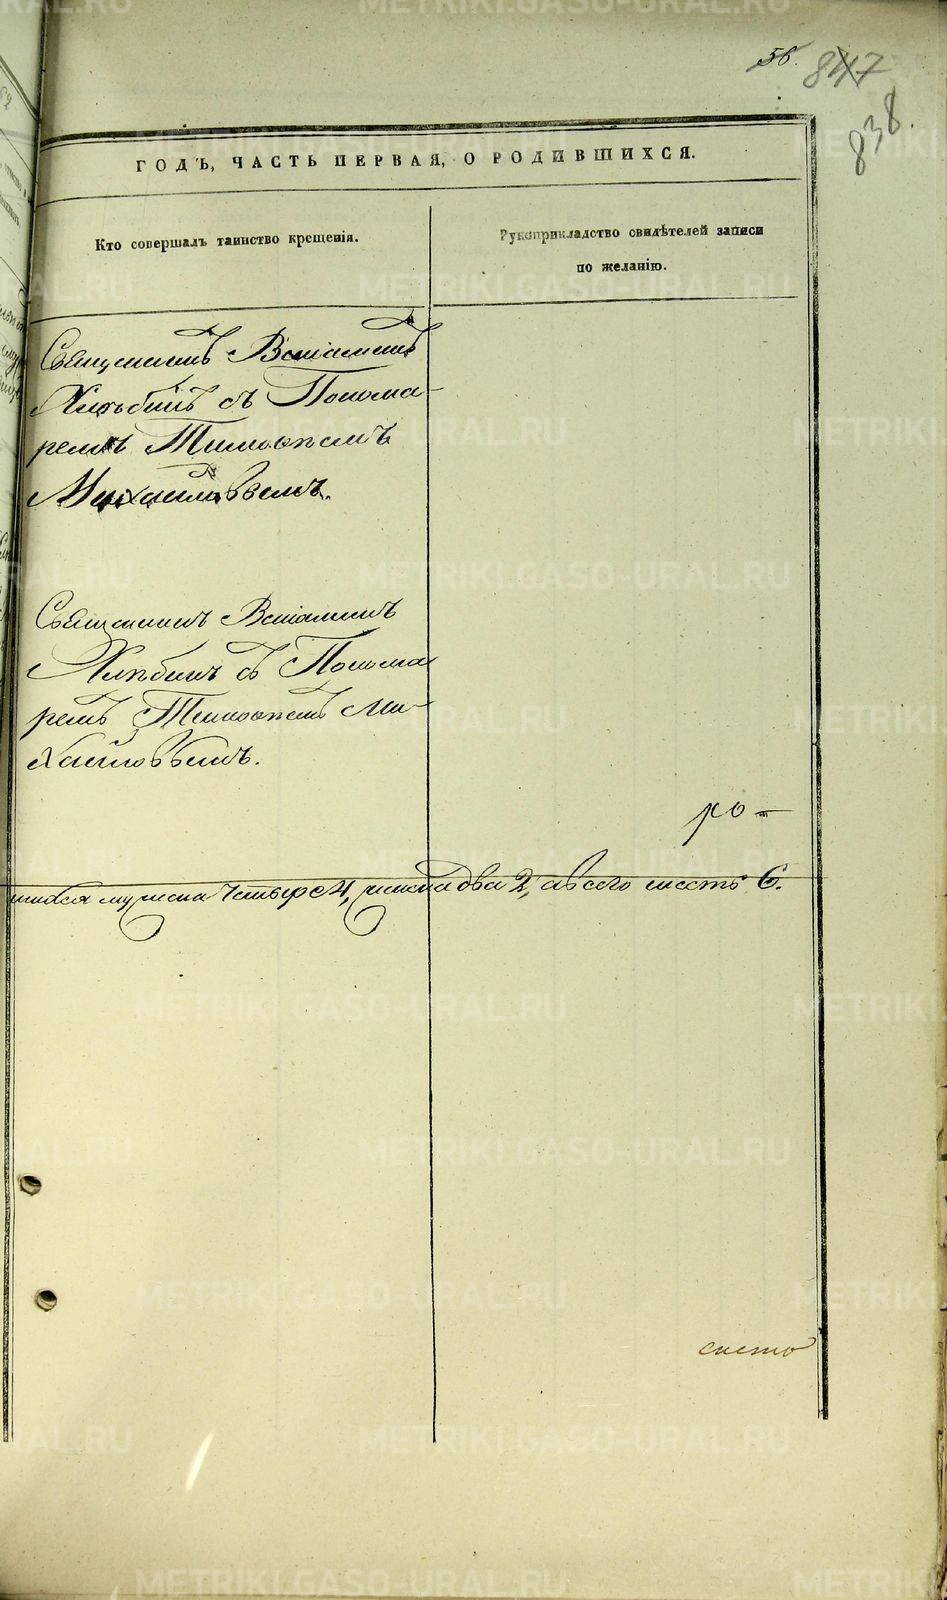 56.
847
838.
ГОДЪ, ЧАСТЬ ПЕРВАЯ, О РОДИВШИХСЯ.
Кто совершалъ таинство крещенія.
Рукоприкладство свидѣтелей записи
по желанію.
Священникъ Веніаминъ
Хлѣбинъ съ Понома-
ремъ Тимоѳеемъ
Михайловымъ.
Священникъ Веніаминъ
Хлѣбинъ съ Понома
ремъ Тимоѳеемъ Ми-
хайловымъ.
ро-
мужска четыре 4, женска два 2, а всего шесть 6.
METRIKI.GASO-URAL.RU